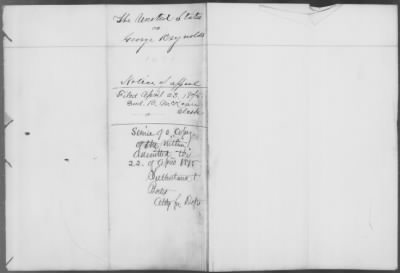 The United States
vs
George Reynolds
Notice of appeal
Filed April 23. 1875.
Clerk
Service of a Copy
of the within
admitted this
22. of April 1875
Sutherland &
Bates
Atty for Deft